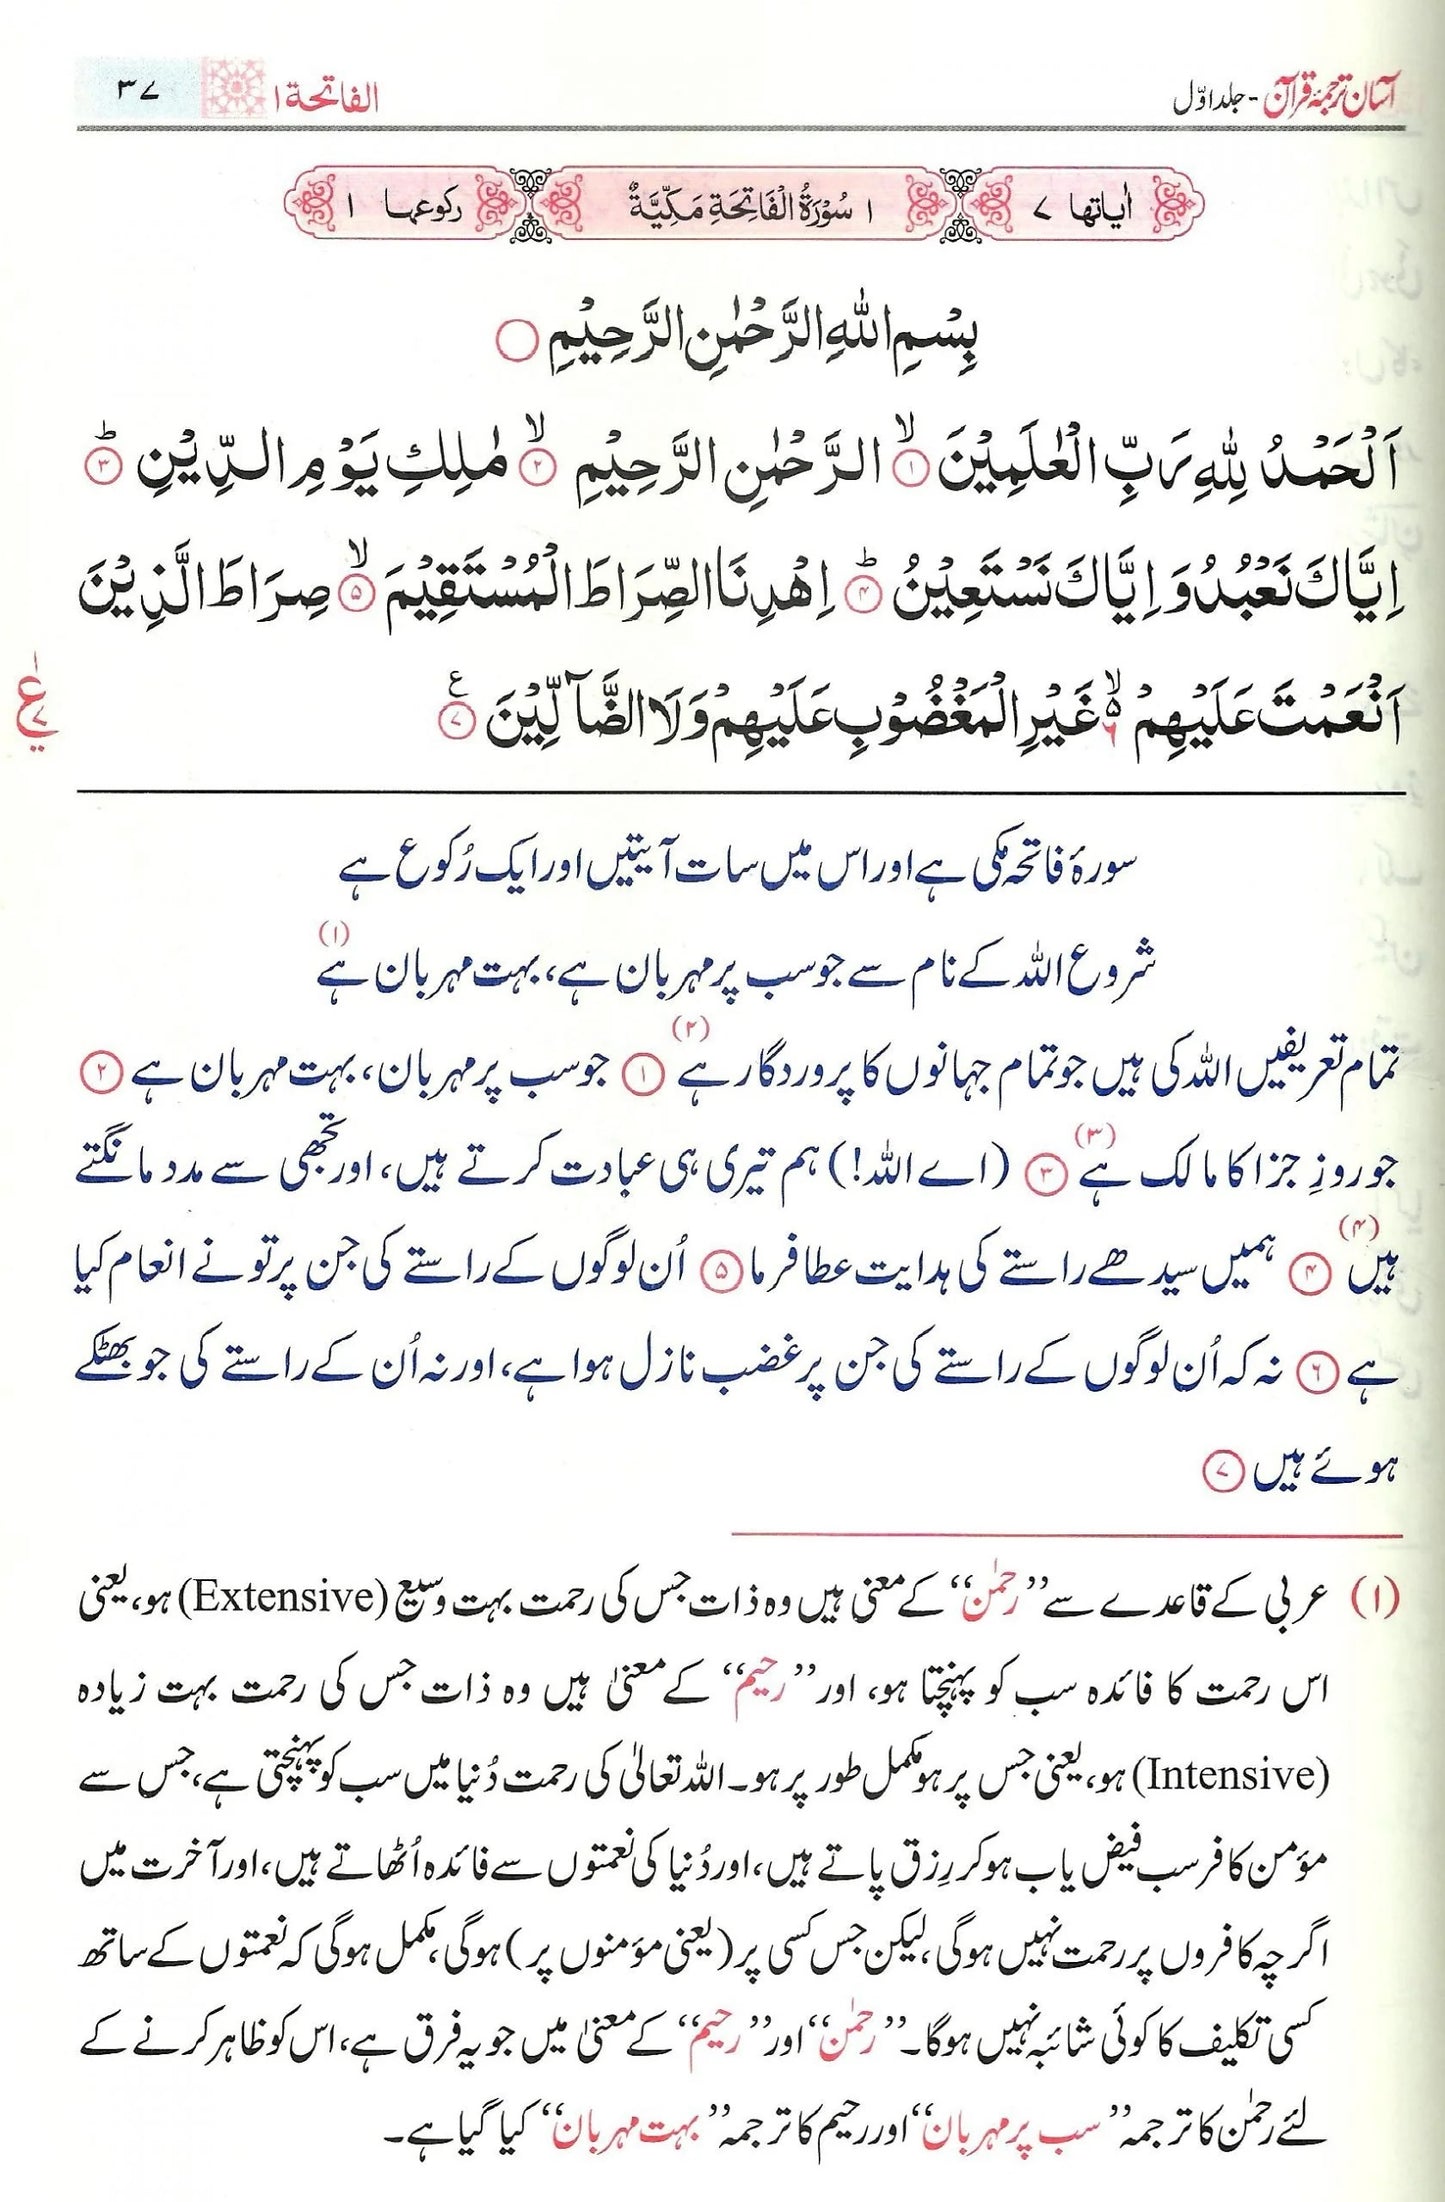 آسان ترجمۂ قرآن - جلد اوّل
الفاتحة ١
٣٧
اٰیاتہا ٧
١ سُوْرَةُ الْفَاتِحَةِ مَكِّيَّةٌ
رکوعہا ١
بِسْمِ اللّٰهِ الرَّحْمٰنِ الرَّحِيْمِ
اَلْحَمْدُ لِلّٰهِ رَبِّ الْعٰلَمِيْنَ ۙ﴿۱﴾ الرَّحْمٰنِ الرَّحِيْمِ ۙ﴿۲﴾ مٰلِكِ يَوْمِ الدِّيْنِ ؕ﴿۳﴾
اِيَّاكَ نَعْبُدُ وَ اِيَّاكَ نَسْتَعِيْنُ ؕ﴿۴﴾ اِهْدِنَا الصِّرَاطَ الْمُسْتَقِيْمَ ۙ﴿۵﴾ صِرَاطَ الَّذِيْنَ
اَنْعَمْتَ عَلَيْهِمْ ۙ۬ۦ ۶ غَيْرِ الْمَغْضُوْبِ عَلَيْهِمْ وَلَا الضَّآلِّيْنَ ﴿۷﴾ ع
سورۂ فاتحہ مکی ہے اور اس میں سات آیتیں اور ایک رُکوع ہے
شروع اللہ کے نام سے جو سب پر مہربان ہے، بہت مہربان ہے (۱)
تمام تعریفیں اللہ کی ہیں جو تمام جہانوں کا پروردگار ہے (۲) ﴿۱﴾ جو سب پر مہربان، بہت مہربان ہے ﴿۲﴾
جو روزِ جزا کا مالک ہے (۳) ﴿۳﴾ (اے اللہ!) ہم تیری ہی عبادت کرتے ہیں، اور تجھی سے مدد مانگتے
ہیں (۴) ﴿۴﴾ ہمیں سیدھے راستے کی ہدایت عطا فرما ﴿۵﴾ اُن لوگوں کے راستے کی جن پر تو نے انعام کیا
ہے ﴿۶﴾ نہ کہ اُن لوگوں کے راستے کی جن پر غضب نازل ہوا ہے، اور نہ اُن کے راستے کی جو بھٹکے
ہوئے ہیں ﴿۷﴾
(۱) عربی کے قاعدے سے ”رحمٰن“ کے معنی ہیں وہ ذات جس کی رحمت بہت وسیع (Extensive) ہو، یعنی
اس رحمت کا فائدہ سب کو پہنچتا ہو، اور ”رحیم“ کے معنیٰ ہیں وہ ذات جس کی رحمت بہت زیادہ
(Intensive) ہو، یعنی جس پر ہو مکمل طور پر ہو۔ اللہ تعالیٰ کی رحمت دُنیا میں سب کو پہنچتی ہے، جس سے
مؤمن کافر سب فیض یاب ہو کر رِزق پاتے ہیں، اور دُنیا کی نعمتوں سے فائدہ اُٹھاتے ہیں، اور آخرت میں
اگرچہ کافروں پر رحمت نہیں ہوگی، لیکن جس کسی پر (یعنی مؤمنوں پر) ہوگی، مکمل ہوگی کہ نعمتوں کے ساتھ
کسی تکلیف کا کوئی شائبہ نہیں ہوگا۔ ”رحمٰن“ اور ”رحیم“ کے معنیٰ میں جو یہ فرق ہے، اس کو ظاہر کرنے کے
لئے رحمٰن کا ترجمہ ”سب پر مہربان“ اور رحیم کا ترجمہ ”بہت مہربان“ کیا گیا ہے۔